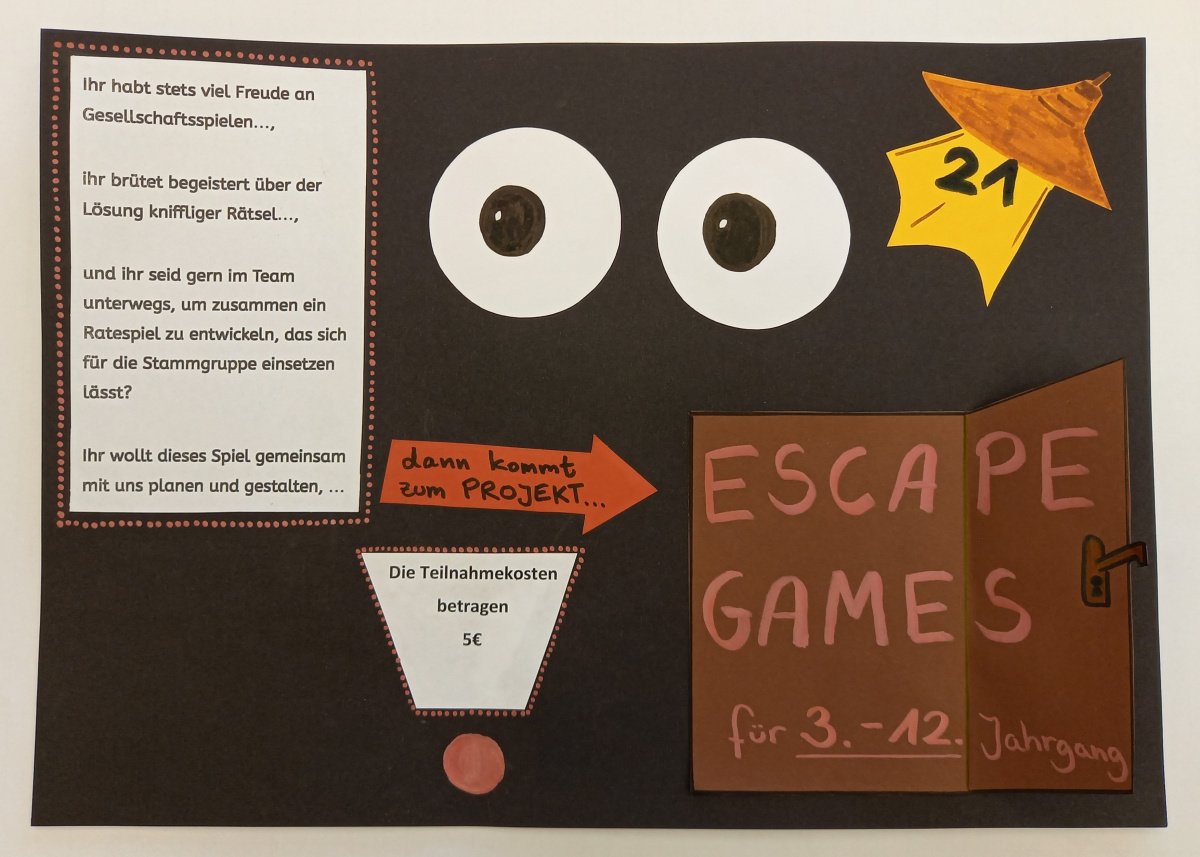 Ihr habt stets viel Freude an
Gesellschaftsspielen...,
ihr brütet begeistert über der
Lösung kniffliger Rätsel...,
und ihr seid gern im Team
unterwegs, um zusammen ein
Ratespiel zu entwickeln, das sich
für die Stammgruppe einsetzen
lässt?
Ihr wollt dieses Spiel gemeinsam
mit uns planen und gestalten, ...
21
dann kommt
zum PROJEKT...
Die Teilnahmekosten
betragen
5€
ESCAPE
GAMES
für 3.-12. Jahrgang